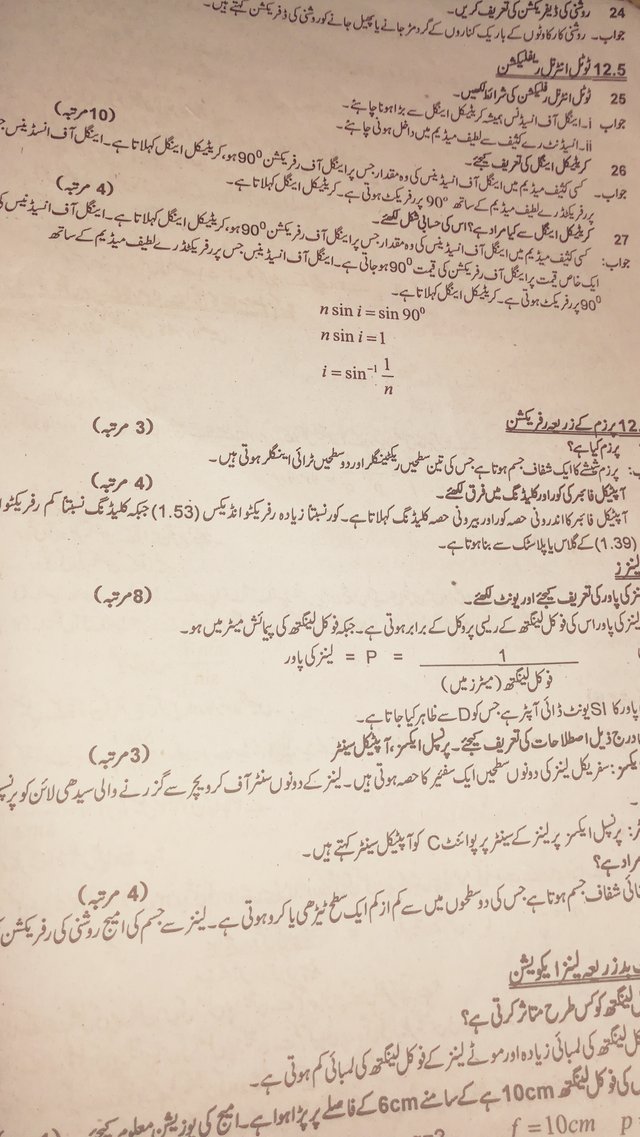 24 روشنی کی ڈیفریکشن کی تعریف کریں۔
جواب۔ روشنی کا رکاوٹوں کے باریک کناروں کے گرد مڑ جانے یا پھیل جانے کو روشنی کی ڈفریکشن کہتے ہیں۔
12.5 ٹوٹل انٹرنل ریفلیکشن
25 ٹوٹل انٹرنل رفلیکشن کی شرائط لکھیں۔
جواب i۔ اینگل آف انسیڈنس ہمیشہ کریٹیکل اینگل سے بڑا ہونا چاہئے۔
ii۔ انسیڈنٹ رے کثیف سے لطیف میڈیم میں داخل ہونی چاہئے۔ (10مرتبہ)
26 کریٹیکل اینگل کی تعریف کیجئے۔
جواب۔ کسی کثیف میڈیم میں اینگل آف انسیڈینس کی وہ مقدار جس پر اینگل آف رفریکشن 90⁰ ہو، کریٹیکل اینگل کہلاتا ہے۔ اینگل آف انسڈینس
پر رفریکٹڈ رے لطیف میڈیم کے ساتھ 90° پر رفریکٹ ہوتی ہے۔ کریٹیکل اینگل کہلاتا ہے۔
27 کریٹیکل اینگل سے کیا مراد ہے؟ اس کی حسابی شکل لکھئے۔ (4 مرتبہ)
جواب: کسی کثیف میڈیم میں اینگل آف انسیڈینس کی وہ مقدار جس پر اینگل آف رفریکشن 90⁰ ہو، کریٹیکل اینگل کہلاتا ہے۔ اینگل آف انسیڈینس کی
ایک خاص قیمت پر اینگل آف رفریکشن کی قیمت 90⁰ ہو جاتی ہے۔ اینگل آف انسیڈینس جس پر رفریکٹڈ رے لطیف میڈیم کے ساتھ
90⁰ پر رفریکٹ ہوتی ہے۔ کریٹیکل اینگل کہلاتا ہے۔
n sin i = sin 90⁰
n sin i = 1
i = sin⁻¹ 1/n
12. پرزم کے ذریعہ رفریکشن
پرزم کیا ہے؟ (3 مرتبہ)
پرزم شیشے کا ایک شفاف جسم ہوتا ہے جس کی تین سطحیں ریکٹینگلر اور دو سطحیں ٹرائی اینگلر ہوتی ہیں۔
آپٹیکل فائبر کی کور اور کلیڈنگ میں فرق لکھئے۔ (4 مرتبہ)
آپٹیکل فائبر کا اندرونی حصہ کور اور بیرونی حصہ کلیڈنگ کہلاتا ہے۔ کور نسبتاً زیادہ رفریکٹو انڈیکس (1.53) جبکہ کلیڈنگ نسبتاً کم رفریکٹو
(1.39) کے گلاس یا پلاسٹک سے بنا ہوتا ہے۔
لینزز
کی پاور کی تعریف کیجئے اور یونٹ لکھئے۔ (8مرتبہ)
لینز کی پاور اس کی فوکل لینگتھ کے ریسی پروکل کے برابر ہوتی ہے۔ جبکہ فوکل لینگتھ کی پیمائش میٹر میں ہو۔
لینز کی پاور = P = 1 / فوکل لینگتھ (میٹرز میں)
پاور کا SI یونٹ ڈائی آپٹر ہے جس کو D سے ظاہر کیا جاتا ہے۔
درج ذیل اصطلاحات کی تعریف کیجئے۔ پرنسپل ایکسز، آپٹیکل سینٹر
ایکسز: سفیریکل لینز کی دونوں سطحیں ایک سفیئر کا حصہ ہوتی ہیں۔ لینز کے دونوں سنٹر آف کرویچر سے گزرنے والی سیدھی لائن کو (3مرتبہ)
پرنسپل ایکسز پر لینز کے سینٹر پر پوائنٹ C کو آپٹیکل سینٹر کہتے ہیں۔
مراد ہے؟
شفاف جسم ہوتا ہے جس کی دو سطحوں میں سے کم از کم ایک سطح ٹیڑھی یا کرو ہوتی ہے۔ لینز سے جسم کی امیج روشنی کی رفریکشن (4 مرتبہ)
بذریعہ لینز ایکویشن
لینگتھ کو کس طرح متاثر کرتی ہے؟
لینگتھ کی لمبائی زیادہ اور موٹے لینز کے فوکل لینگتھ کی لمبائی کم ہوتی ہے۔
کی فوکل لینگتھ 10cm ہے کے سامنے 6cm کے فاصلے پر پڑا ہوا ہے۔ امیج کی پوزیشن معلوم کیجئے۔
f = 10cm p